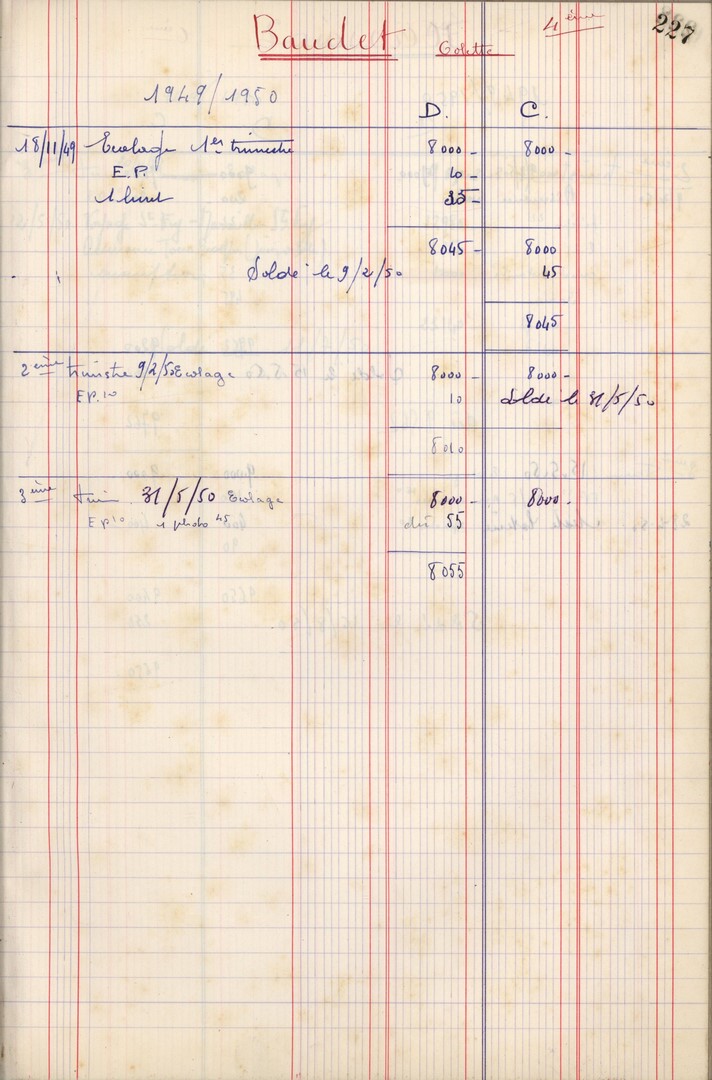 Baudet Colette 4ème 227
1949/1950 D. C.
18/11/49 Ecolage 1er trimestre 8000 - 8000 -
E.P. 10 -
1 livret 35 -
8045 - 8000
Soldé le 9/2/50 45
8045
2ème trimestre 9/2/50 Ecolage 8000 - 8000 -
EP. 10 10 Soldé le 31/5/50
8010
3ème trim. 31/5/50 Ecolage 8000 - 8000 -
EP 10 1 photo 45 dû 55
8055